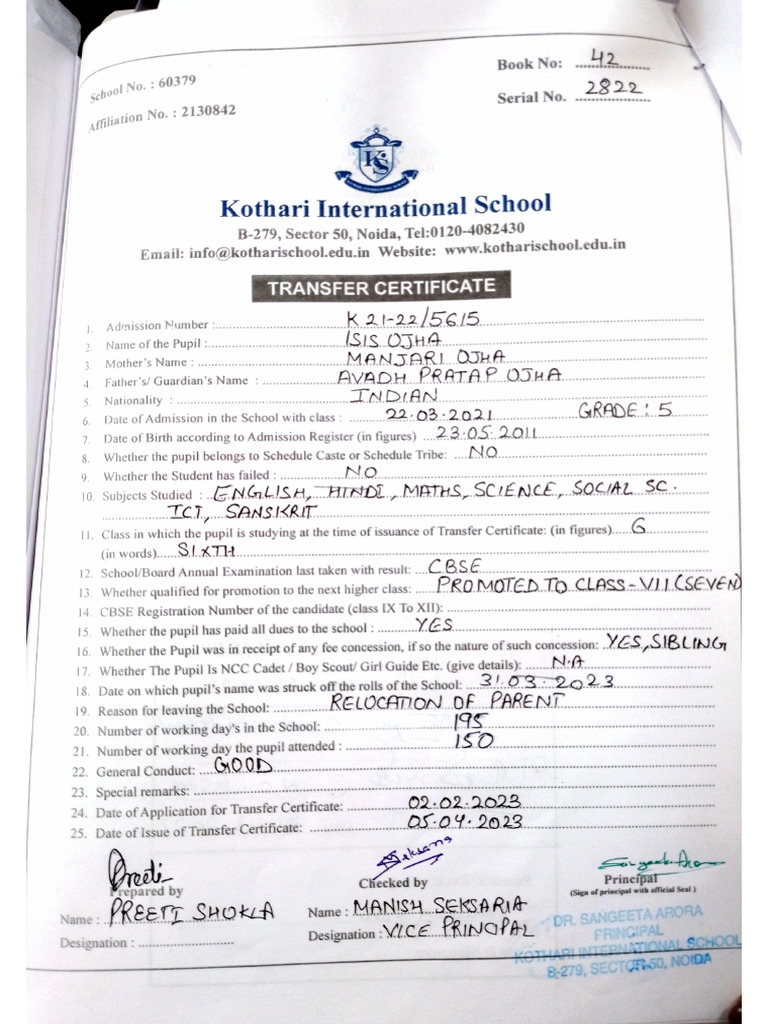 School No. : 60379
Book No: 42
Affiliation No. : 2130842
Serial No. 2822
KS
KOTHARI INTERNATIONAL SCHOOL
Kothari International School
B-279, Sector 50, Noida, Tel:0120-4082430
Email: info@kotharischool.edu.in Website: www.kotharischool.edu.in
TRANSFER CERTIFICATE
1. Admission Number : K 21-22/5615
2. Name of the Pupil : ISIS OJHA
3. Mother's Name : MANJARI OJHA
4. Father's/ Guardian's Name : AVADH PRATAP OJHA
5. Nationality : INDIAN
6. Date of Admission in the School with class : 22.03.2021 GRADE: 5
7. Date of Birth according to Admission Register (in figures) 23.05.2011
8. Whether the pupil belongs to Schedule Caste or Schedule Tribe: NO
9. Whether the Student has failed : NO
10. Subjects Studied : ENGLISH, HINDI, MATHS, SCIENCE, SOCIAL SC.
ICT, SANSKRIT
11. Class in which the pupil is studying at the time of issuance of Transfer Certificate: (in figures) 6
(in words) SIXTH
12. School/Board Annual Examination last taken with result: CBSE
13. Whether qualified for promotion to the next higher class: PROMOTED TO CLASS-VII (SEVEN)
14. CBSE Registration Number of the candidate (class IX To XII):
15. Whether the pupil has paid all dues to the school : YES
16. Whether the Pupil was in receipt of any fee concession, if so the nature of such concession: YES, SIBLING
17. Whether The Pupil Is NCC Cadet / Boy Scout/ Girl Guide Etc. (give details): N.A
18. Date on which pupil's name was struck off the rolls of the School: 31.03.2023
19. Reason for leaving the School: RELOCATION OF PARENT
20. Number of working day's in the School: 195
21. Number of working day the pupil attended : 150
22. General Conduct: GOOD
23. Special remarks:
24. Date of Application for Transfer Certificate: 02.02.2023
25. Date of Issue of Transfer Certificate: 05.04.2023
Preeti Seksaria Sangeeta Arora
Prepared by Checked by Principal
(Sign of principal with official Seal )
Name : PREETI SHUKLA Name : MANISH SEKSARIA
Designation : Designation : VICE PRINCIPAL
DR. SANGEETA ARORA
PRINCIPAL
KOTHARI INTERNATIONAL SCHOOL
B-279, SECTOR-50, NOIDA